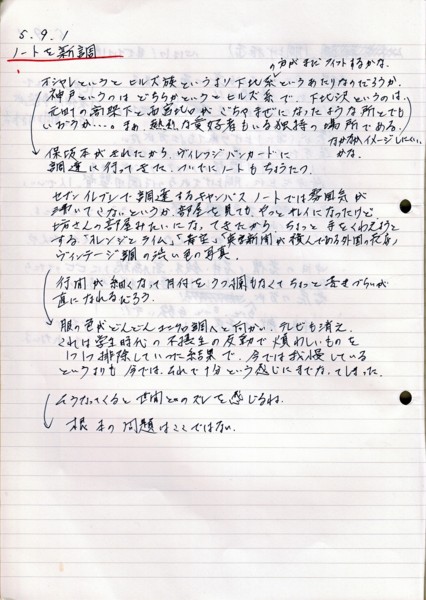 5.9.1
ノートを新調
の方がまだフィットするかな。
オシャレというと ヒルズ族というより下北系というあたりなのだろうか。
神戸というのは どちらかというと ヒルズ系で、下北沢というのは、
元町の高架下と が ごちゃまぜになったような所とでも
いおうか…。まあ、熱烈な愛好者もいる独特の場所である。
イメージしにくい
かな。
保坂本がきれたから、ヴィレッジバンガードに
調達に行ってきた。ついでにノートもちょうたつ。
セブンイレブンで調達するキャンパスノートでは雰囲気が
湧いてこないというか、部屋を見ても、やっとキレイになったけど、
坊さんの部屋みたいになってきたから、ちょっと手をくわえようと
する。「オレンジとライム」 「新聞が積んである外国の
ヴィンテージ調の渋い色の写真。
行間が細くなって日付をつける欄もなくてちょっと書きづらいが
直になれるだろう。
服の色がどんどんモノクロ調へと向かい、テレビも消え、
これは学生時代の不摂生の反動で煩わしいものを
1つ1つ排除していった結果で、今では我慢している
というよりも今では、これで十分という感じにまでなってしまった。
こうなってくると世間とのズレを感じるね。
根本の問題はここではない。